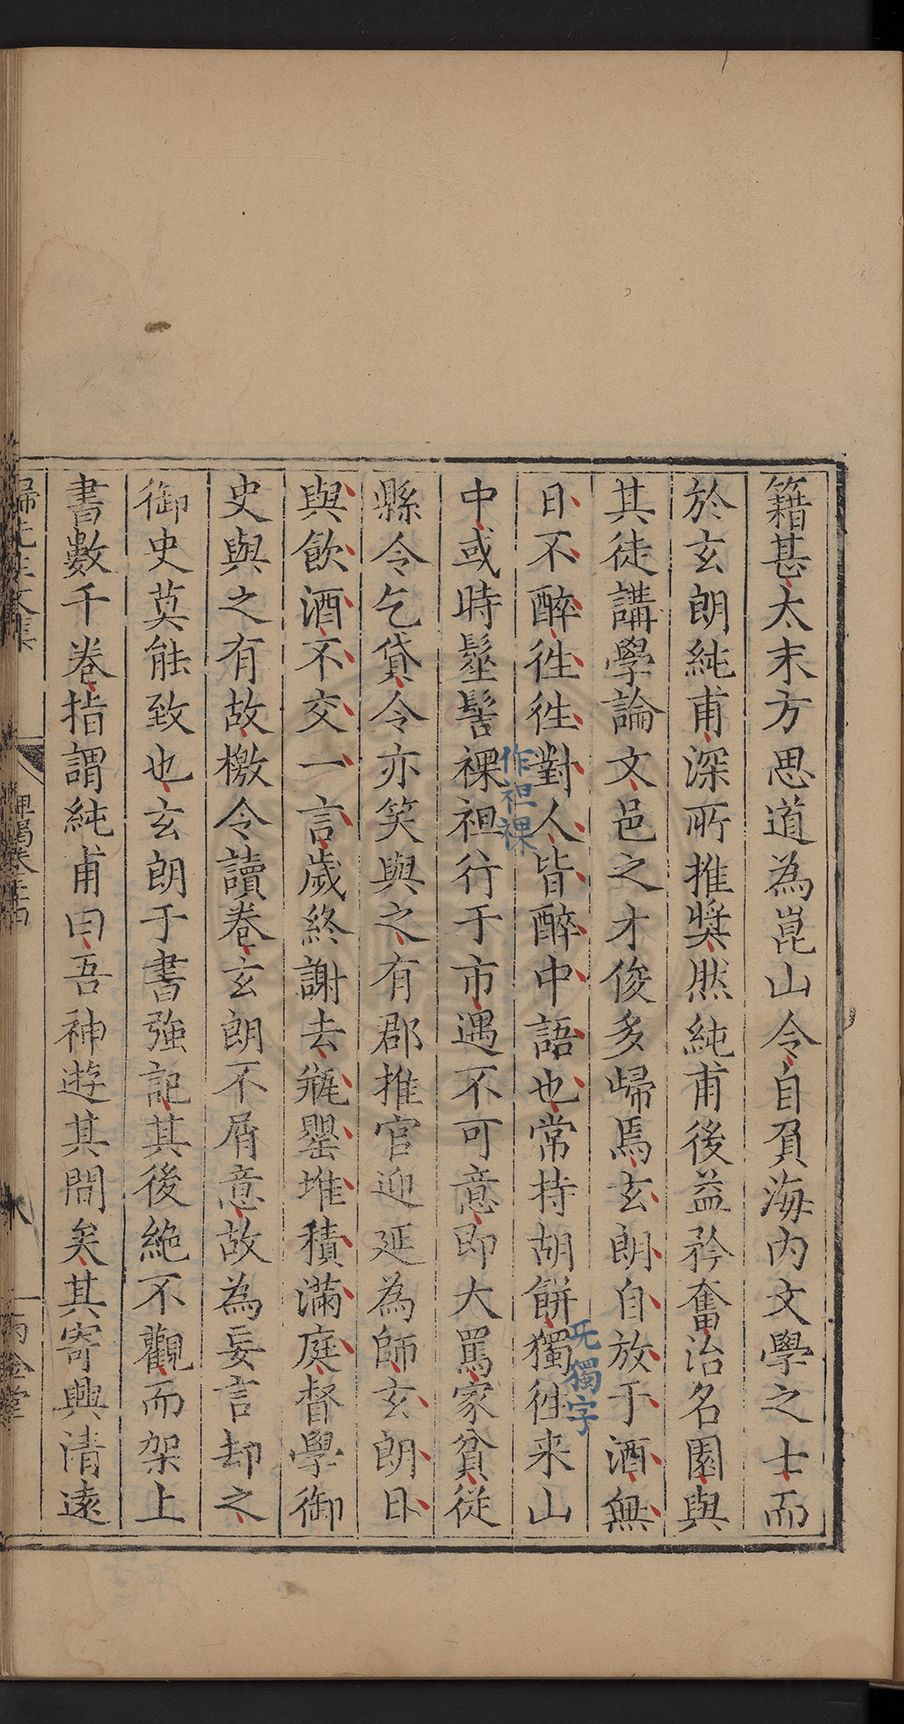 籍甚太末方思道為崑山令自負海內文學之士而
於玄朗純甫深所推奬然純甫後益矜奮治名園與
其徒講學論文邑之才俊多歸焉玄朗自放于酒無
日不醉徃徃對人皆醉中語也常持胡餅獨徃来山
无獨字
中或時髽髻裸袒行于市遇不可意即大罵家貧從
作袒裸
縣令乞貸令亦笑與之有郡推官迎延為師玄朗日
與飲酒不交一言歲終謝去瓶罌堆積滿庭督學御
史與之有故檄令讀卷玄朗不屑意故為妄言却之
御史莫能致也玄朗于書強記其後絶不觀而架上
書數千卷指謂純甫曰吾神遊其間矣其寄興清遠
歸先生文集